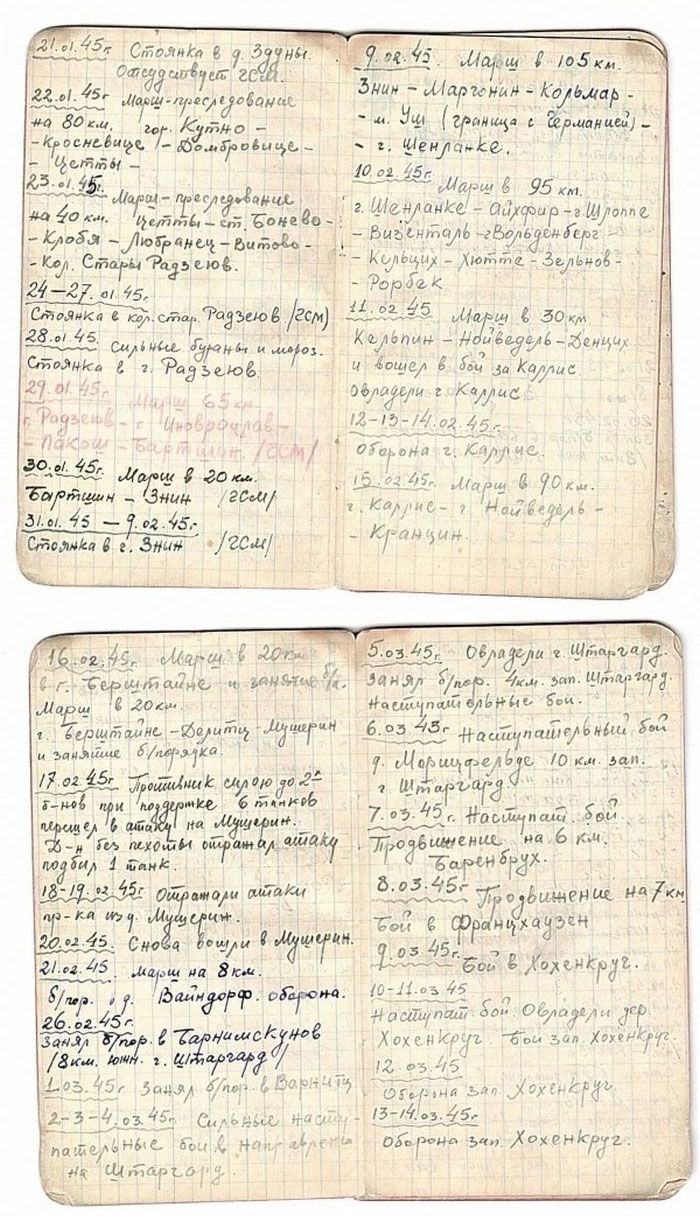 21.01.45г. Стоянка в д. Здуны.
Отсудствует ГСМ.
22.01.45г Марш-преследование
на 80 км. гор. Кутно -
- Кросневице - Домбровице -
- Цетты -
23.01.45г. Марш-преследование
на 40 км. Цетты - ст. Бонево -
- Клобя - Любранец - Витово -
- Кол. Стары Радзеюв.
24-27.01.45г.
Стоянка в кол. стар. Радзеюв /ГСМ/
28.01.45. Сильные бураны и мороз.
Стоянка в г. Радзеюв.
29.01.45г. Марш 65 км.
г. Радзеюв - г. Иновроцлав -
- Пакош - Бартшин. /ГСМ/
30.01.45г. Марш в 20 км.
Бартшин - Знин /ГСМ/
31.01.45 - 9.02.45г
Стоянка в г. Знин /ГСМ/
9.02.45. Марш в 105 км.
Знин - Маргонин - Кольмар -
- м. Уш (граница с Германией) -
- г. Шенланке.
10.02.45г.
Марш в 95 км.
г. Шенланке - Айхфир - г Шлоппе
- Визенталь - г Вольденберг -
- Кельцих - Хютте - Зельнов -
- Рорбек
11.02.45 Марш в 30 км
Кельпин - Нойведель - Денцих
и вошел в бой за Каллис
овладели г Каллис.
12-13-14.02.45г.
оборона г. Каллис.
15.02.45г. Марш в 90 км.
г. Каллис - г. Нойведель -
- Кранцин.
16.02.45г. Марш в 20 км
в г. Берштайне и занятие б/п.
Марш в 20 км.
г. Берштайне - Делитц - Мушерин
и занятие б/порядка.
17.02.45г Противник силою до 2х
б-нов при поддержке 6 танков
перешел в атаку на Мушерин.
Д-н без пехоты отражал атаку
подбил 1 танк.
18-19.02.45г Отражали атаки
пр-ка из д. Мушерин.
20.02.45. Снова вошли в Мушерин.
21.02.45. Марш на 8 км.
б/пор. о д. Вайндорф. оборона.
26.02.45г.
Занял б/пор. в Барнимскунов
/8 км. южн. г. Штаргард/
1.03.45г Занял б/пор. в Варнитц
2-3-4.03.45г. Сильные насту-
пательные бои в направлении
на Штаргард.
5.03.45г. Овладели г. Штаргард.
занял б/пор. 4 км. зап. Штаргард.
Наступательные бои.
6.03.45г Наступательный бой
д. Морицфельде 10 км. зап.
г. Штаргард.
7.03.45г. Наступат. бой.
Продвижение на 6 км.
Баренбрух.
8.03.45г Продвижение на 7 км
Бой в Францхаузен
9.03.45г. Бой в Хохенкруг.
10-11.03.45
Наступат. бой. Овладели дер.
Хохенкруг. Бои зап. Хохенкруг.
12.03.45
Оборона зап. Хохенкруг
13-14.03.45г
Оборона зап. Хохенкруг.